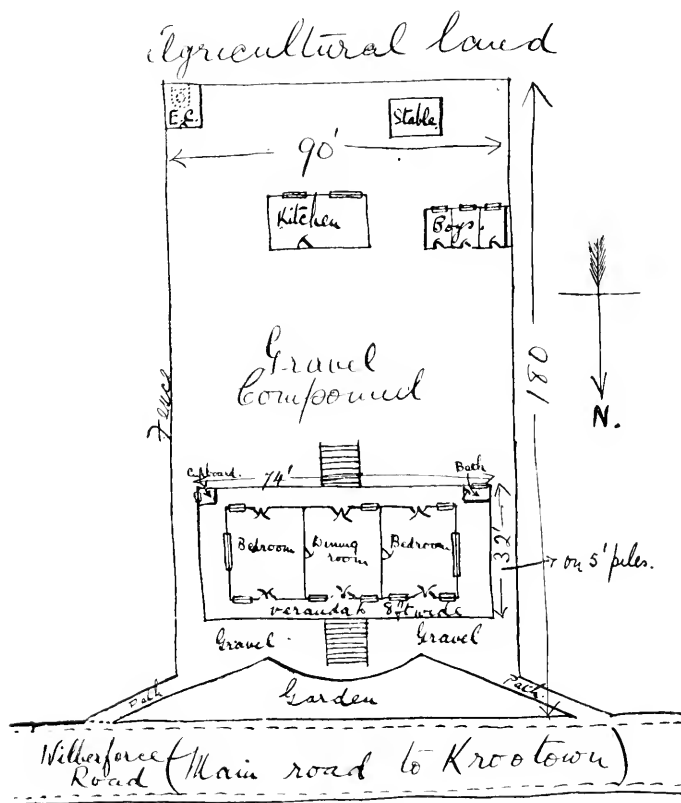 Agricultural land
E.C.
Stable
90'
Kitchen
Boys.
Gravel
Compound
Fence
180
N.
Cupboard.
74'
Bath
Bedroom
Dining
room
Bedroom
32'
on 5' piles.
verandah 8ft wide
Gravel
Gravel
Path
Garden
Path.
Wilberforce
Road (Main road to Krootown)